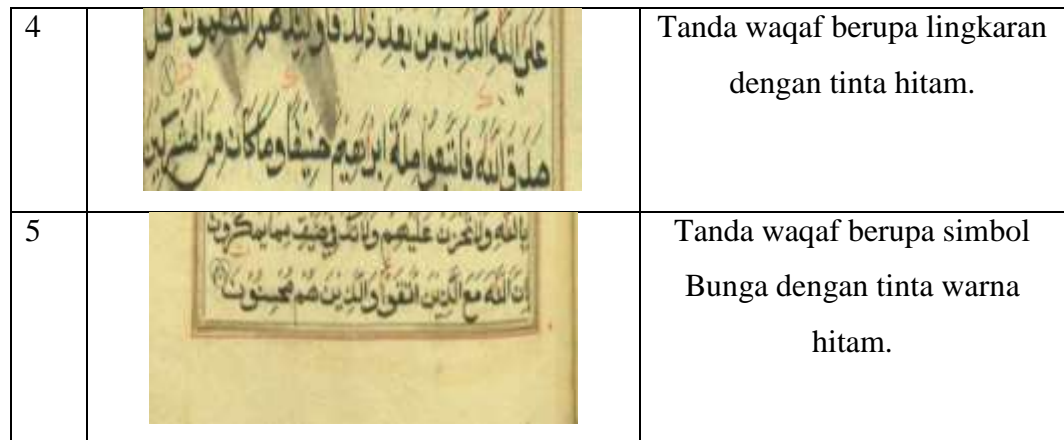 4
عَلَى اللّٰهِ الْكَذِبَ مِنْ بَعْدِ ذٰلِكَ فَاُولٰٓئِكَ هُمُ الظّٰلِمُونَ قُلْ
صَدَقَ اللّٰهُ فَاتَّبِعُوا مِلَّةَ اِبْرٰهِيْمَ حَنِيْفًا وَمَا كَانَ مِنَ الْمُشْرِكِيْنَ
Tanda waqaf berupa lingkaran
dengan tinta hitam.
5
بِاللّٰهِ وَلَا تَحْزَنْ عَلَيْهِمْ وَلَا تَكُ فِيْ ضَيْقٍ مِمَّا يَمْكُرُوْنَ
اِنَّ اللّٰهَ مَعَ الَّذِيْنَ اتَّقَوْا وَالَّذِيْنَ هُمْ مُحْسِنُوْنَ
Tanda waqaf berupa simbol
Bunga dengan tinta warna
hitam.